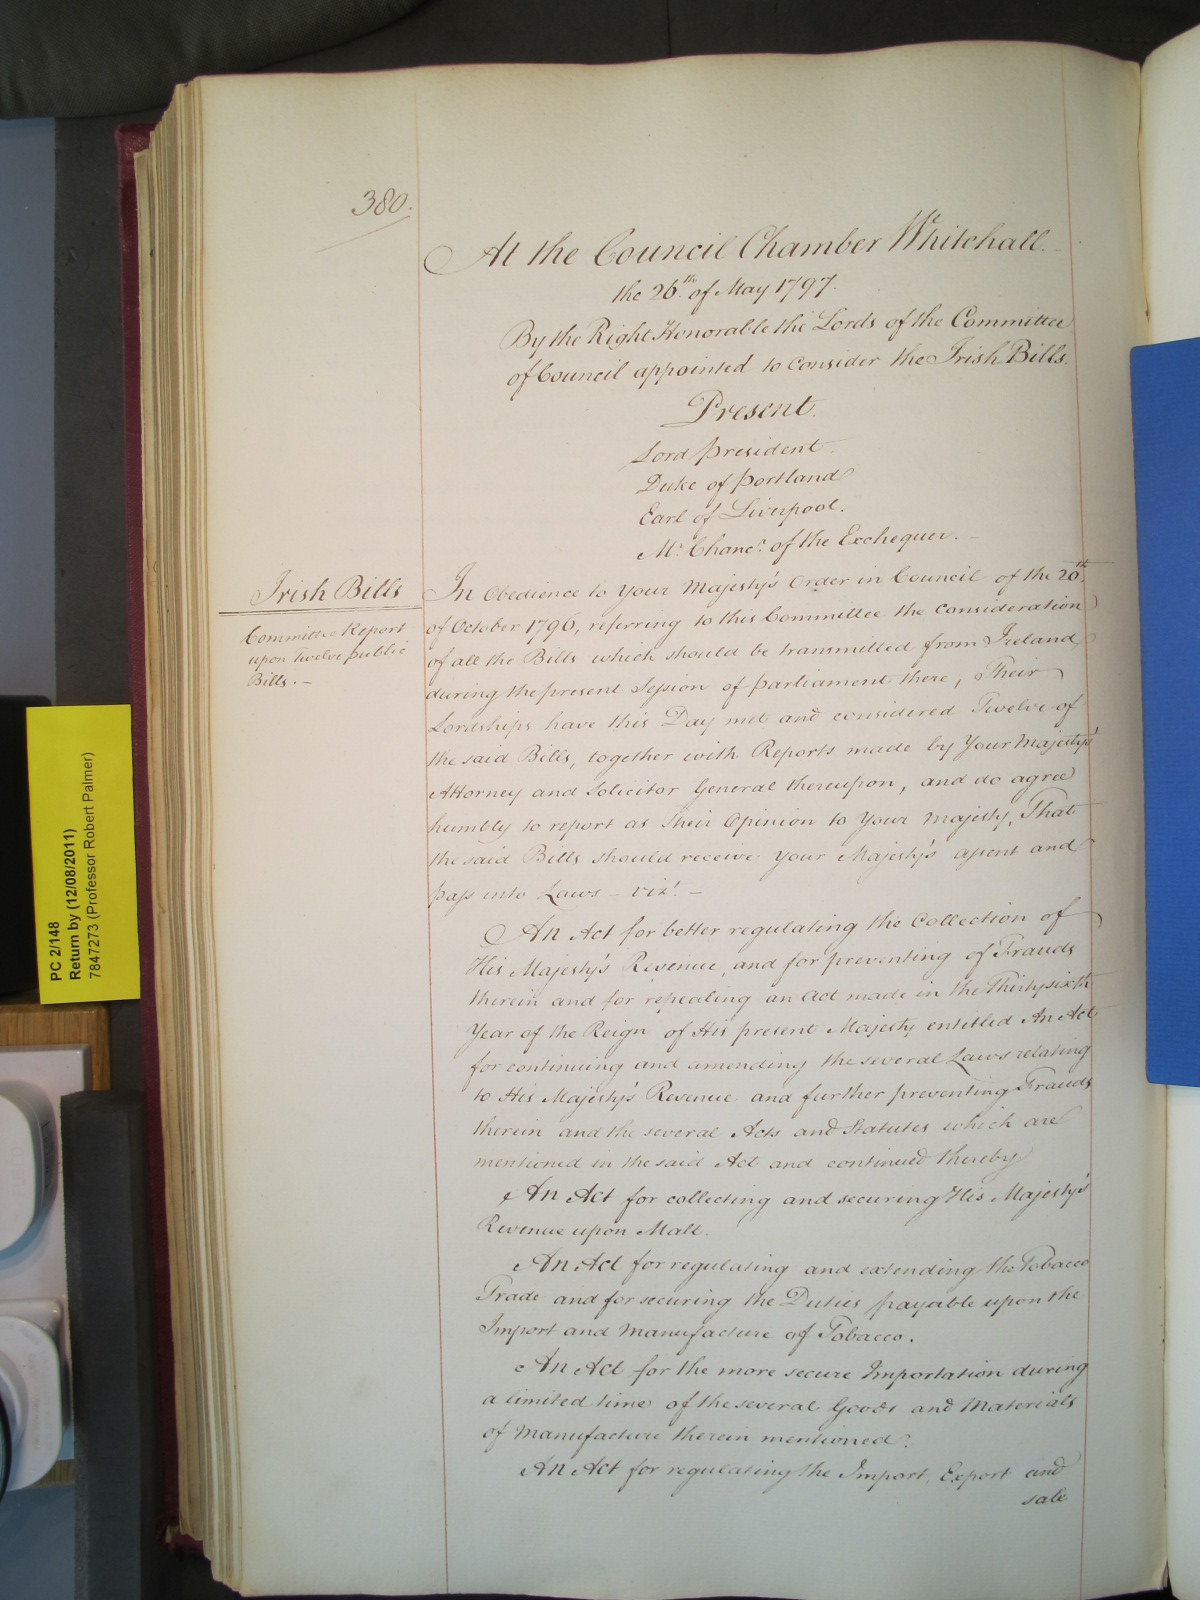 380.
At the Council Chamber Whitehall.
the 26th. of May 1797.
By the Right Honorable the Lords of the Committee
of Council appointed to consider the Irish Bills.
Present.
Lord President
Duke of Portland
Earl of Liverpool.
Mr. Chancr. of the Exchequer. -
Irish Bills
Committee Report
upon Twelve public
Bills. -
In Obedience to Your Majesty's Order in Council of the 20th.
of October 1796, referring to this Committee the consideration
of all the Bills which should be transmitted from Ireland
during the present Session of Parliament there, Their
Lordships have this Day met and considered Twelve of
the said Bills, together with Reports made by Your Majesty's
Attorney and Solicitor General thereupon, and do agree
humbly to report as Their Opinion to Your Majesty, That
the said Bills should receive Your Majesty's assent and
pass into Laws - vizt. -
An Act for better regulating the Collection of
His Majesty's Revenue, and for preventing of Frauds
therein and for repealing an Act made in the Thirty sixth
Year of the Reign of His present Majesty entitled An Act
for continuing and amending the several Laws relating
to His Majesty's Revenue and further preventing Frauds
therein and the several Acts and Statutes which are
mentioned in the said Act and continued thereby
An Act for collecting and securing His Majesty's
Revenue upon Malt.
An Act for regulating and extending the Tobacco
Trade and for securing the Duties payable upon the
Import and Manufacture of Tobacco.
An Act for the more secure Importation during
a limited time of the several Goods and Materials
of Manufacture therein mentioned.
An Act for regulating the Import, Export and
sale
PC 2/148
Return by (12/08/2011)
7847273 (Professor Robert Palmer)